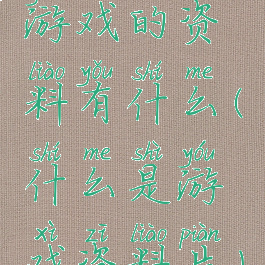 游戏的资
liào yǒu shí me
料有什么(
shí me shì yóu
什么是游
xì zī liào piàn
戏资料片)